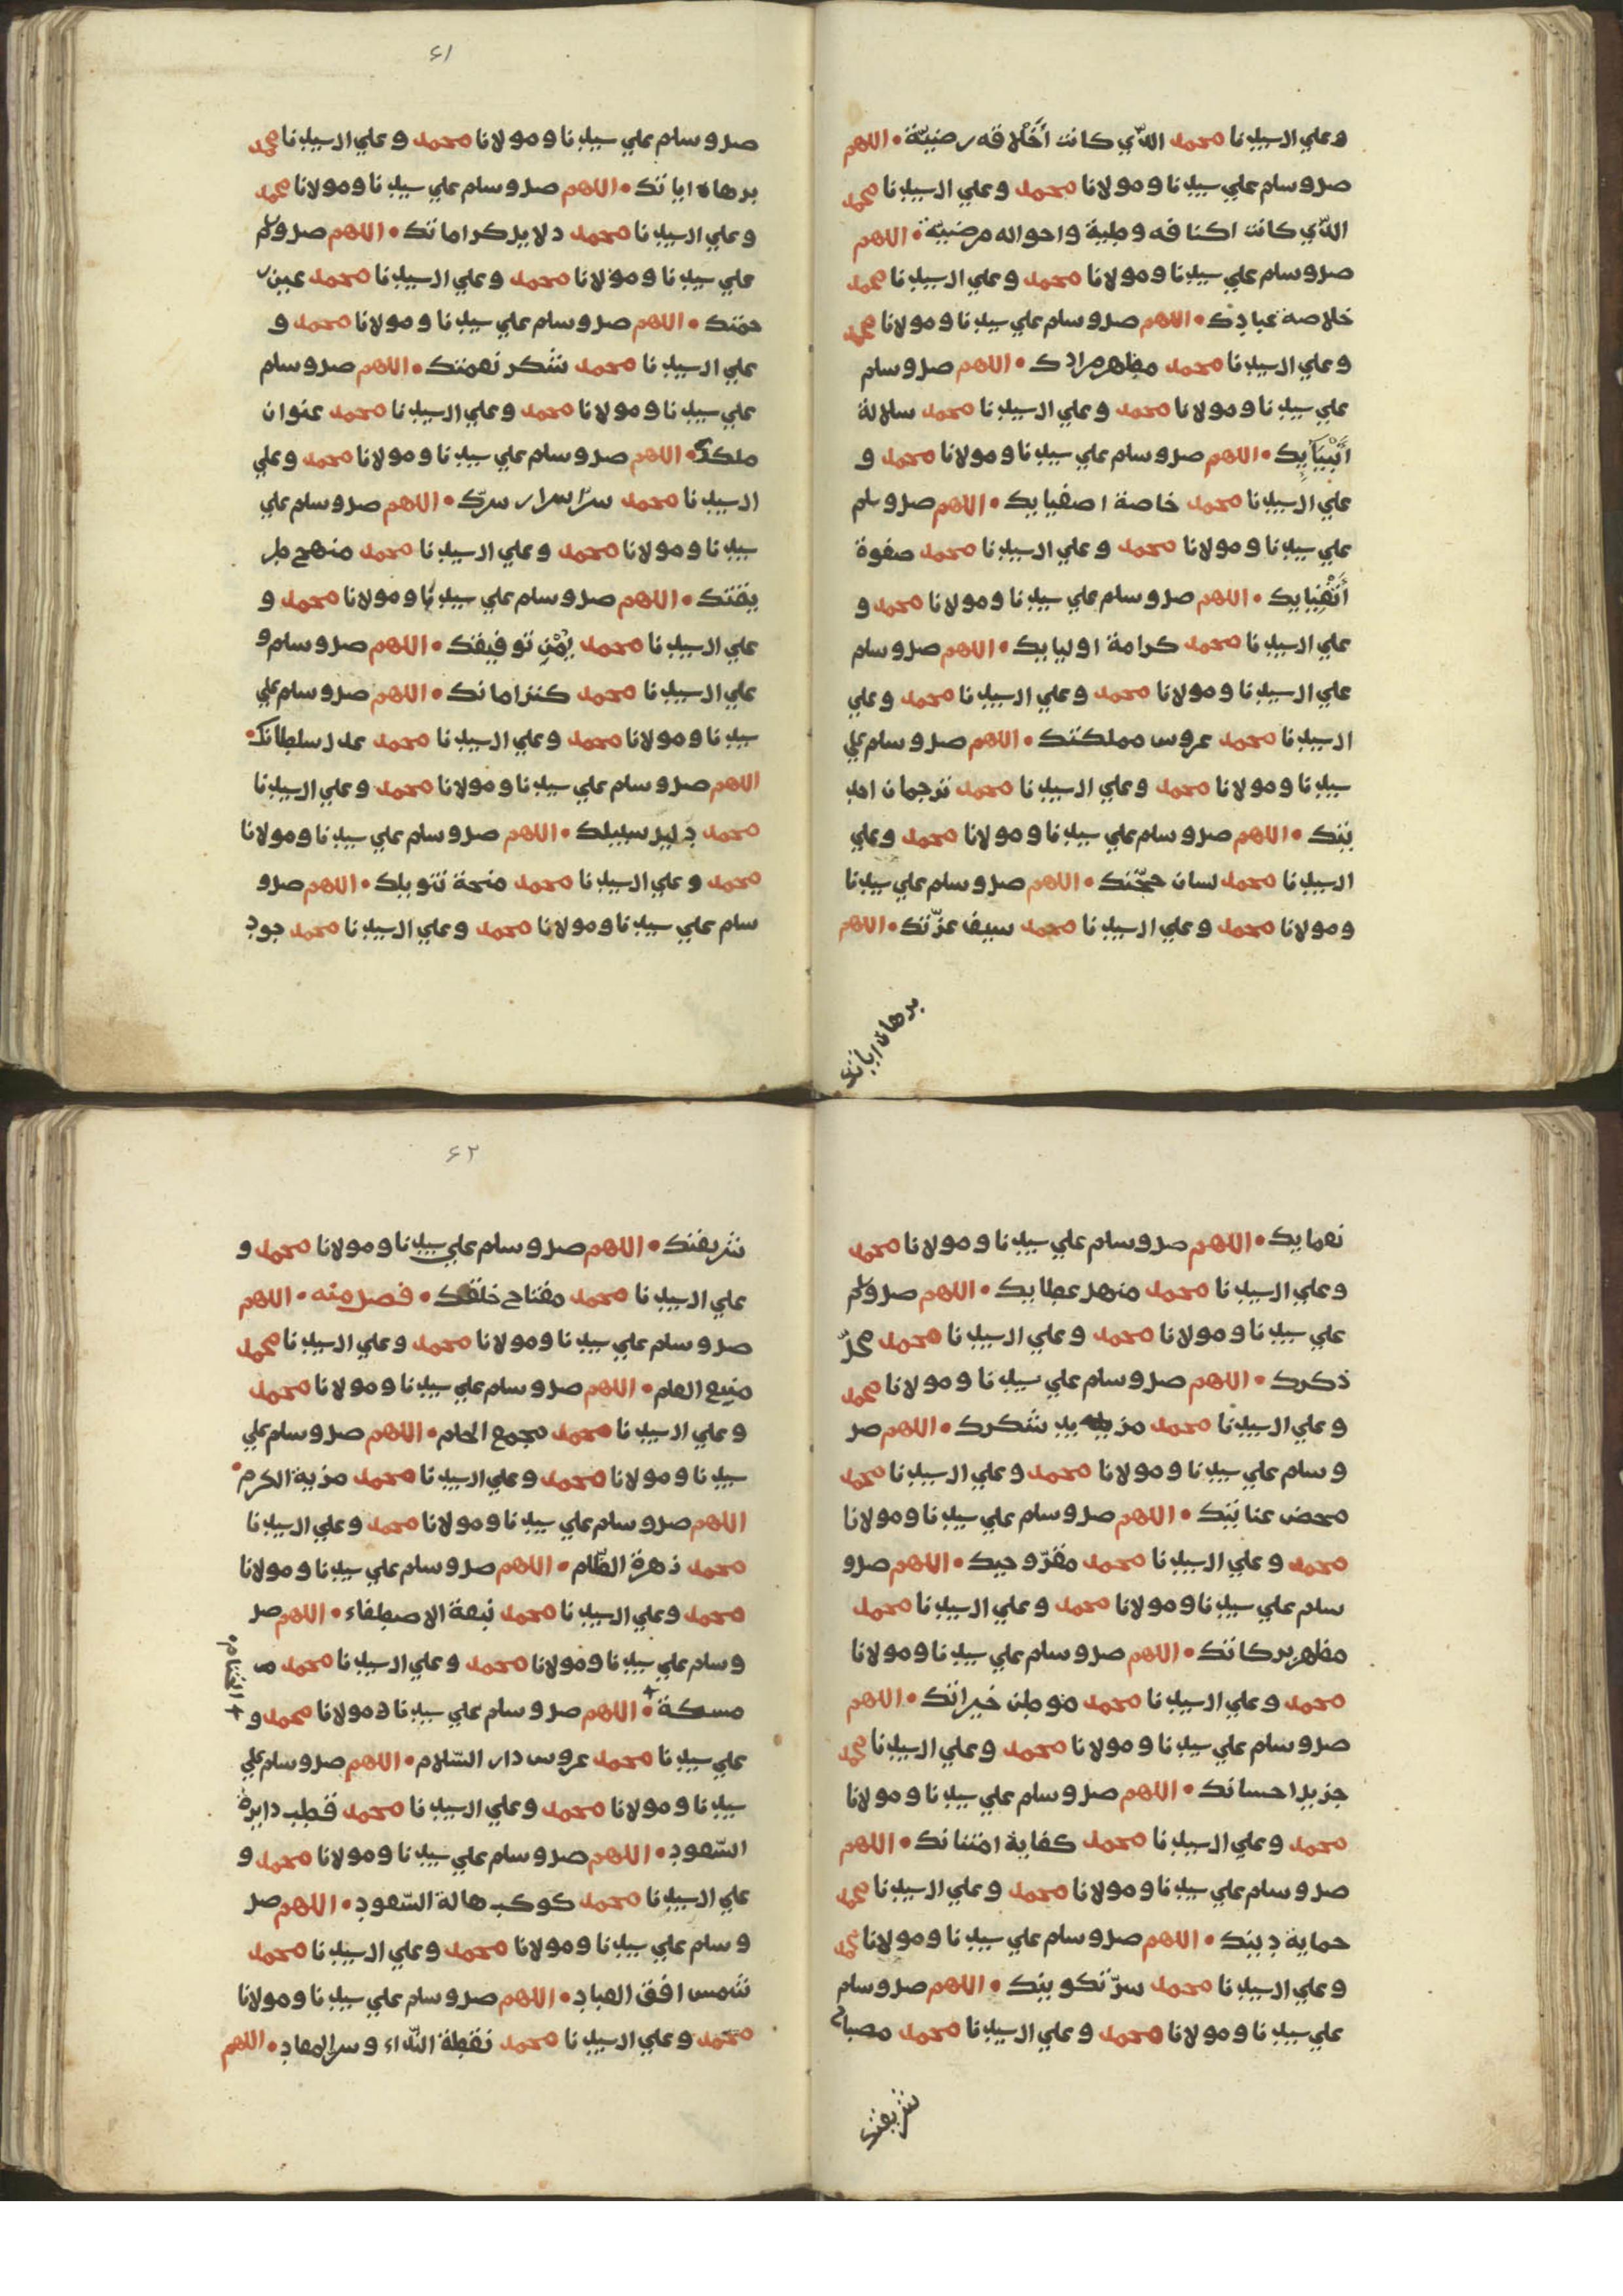 وعلي ال سيدنا محمد الذي كانت أَخْلاقه رضيّة • اللهم
صل وسلم علي سيدنا ومولانا محمد وعلي ال سيدنا محمد
الذّي كانت اكنافه وطية واحواله مرضيّة • اللهم
صل وسلم علي سيدنا ومولانا محمد وعلي ال سيدنا محمد
خلاصة عبادك • اللهم صل وسلم علي سيدنا ومولانا محمد
وعلي ال سيدنا محمد مظهر مرادك • اللهم صل وسلم
علي سيدنا ومولانا محمد وعلي ال سيدنا محمد سلالة
أَنْبِيَآيِك • اللهم صل وسلم علي سيدنا ومولانا محمد و
علي ال سيدنا محمد خاصة اصفيايك • اللهم صل وسلم
علي سيدنا ومولانا محمد وعلي ال سيدنا محمد صفوة
أَتْقِيايك • اللهم صل وسلم علي سيدنا ومولانا محمد و
علي ال سيدنا محمد كرامة اوليايك • اللهم صل وسلم
علي ال سيدنا ومولانا محمد وعلي ال سيدنا محمد وعلي
ال سيدنا محمد عروس مملكتك • اللهم صل وسلم علي
سيدنا ومولانا محمد وعلي ال سيدنا محمد ترجمان احد
يتك • اللهم صل وسلم علي سيدنا ومولانا محمد وعلي
ال سيدنا محمد لسان حجّتك • اللهم صل وسلم علي سيدنا
ومولانا محمد وعلي ال سيدنا محمد سيف عزّتك • اللهم
برهان اياتك
٦١
صل وسلم علي سيدنا ومولانا محمد وعلي ال سيدنا محمد
برهان اياتك • اللهم صل وسلم علي سيدنا ومولانا محمد
وعلي ال سيدنا محمد دلايل كراماتك • اللهم صل وسلم
علي سيدنا ومولانا محمد وعلي ال سيدنا محمد عين ر
حمتك • اللهم صل وسلم علي سيدنا ومولانا محمد و
علي ال سيدنا محمد شكر نعمتك • اللهم صل وسلم
علي سيدنا ومولانا محمد وعلي ال سيدنا محمد عنوان
ملكك • اللهم صل وسلم علي سيدنا ومولانا محمد وعلي
ال سيدنا محمد سرّ اسرار سرّك • اللهم صل وسلم علي
سيدنا ومولانا محمد وعلي ال سيدنا محمد منهج طر
يقتك • اللهم صل وسلم علي سيدنا ومولانا محمد و
علي ال سيدنا محمد يُمْنِ توفيقك • اللهم صل وسلم و
علي ال سيدنا محمد كنز امانك • اللهم صل وسلم علي
سيدنا ومولانا محمد وعلي ال سيدنا محمد عدل سلطانك •
اللهم صل وسلم علي سيدنا ومولانا محمد وعلي ال سيدنا
محمد دليل سبيلك • اللهم صل وسلم علي سيدنا ومولانا
محمد وعلي ال سيدنا محمد منحة تنويلك • اللهم صل و
سلم علي سيدنا ومولانا محمد وعلي ال سيدنا محمد جود
نعمايك • اللهم صل وسلم علي سيدنا ومولانا محمد
وعلي ال سيدنا محمد منهل عطايك • اللهم صل وسلم
علي سيدنا ومولانا محمد وعلي ال سيدنا محمد محلّ
ذكرك • اللهم صل وسلم علي سيدنا ومولانا محمد
وعلي ال سيدنا محمد مز يد شكرك • اللهم صل
وسلم علي سيدنا ومولانا محمد وعلي ال سيدنا محمد
محض عنايتك • اللهم صل وسلم علي سيدنا ومولانا
محمد وعلي ال سيدنا محمد مقرّ وحيك • اللهم صل و
سلم علي سيدنا ومولانا محمد وعلي ال سيدنا محمد
مظهر بركاتك • اللهم صل وسلم علي سيدنا ومولانا
محمد وعلي ال سيدنا محمد موطن خيراتك • اللهم
صل وسلم علي سيدنا ومولانا محمد وعلي ال سيدنا محمد
جزيل احسانك • اللهم صل وسلم علي سيدنا ومولانا
محمد وعلي ال سيدنا محمد كفاية امتنانك • اللهم
صل وسلم علي سيدنا ومولانا محمد وعلي ال سيدنا محمد
حماية دينك • اللهم صل وسلم علي سيدنا ومولانا محمد
وعلي ال سيدنا محمد سرّ تكوينك • اللهم صل وسلم
علي سيدنا ومولانا محمد وعلي ال سيدنا محمد مصباح
شريعتك
٦٢
شريعتك • اللهم صل وسلم علي سيدنا ومولانا محمد و
علي ال سيدنا محمد مفتاح خلقك • فصل منه • اللهم
صل وسلم علي سيدنا ومولانا محمد وعلي ال سيدنا محمد
منبع العلم • اللهم صل وسلم علي سيدنا ومولانا محمد
وعلي ال سيدنا محمد مجمع الحلم • اللهم صل وسلم علي
سيدنا ومولانا محمد وعلي ال سيدنا محمد مزية الكرم •
اللهم صل وسلم علي سيدنا ومولانا محمد وعلي ال سيدنا
محمد زهرة الظّلام • اللهم صل وسلم علي سيدنا ومولانا
محمد وعلي ال سيدنا محمد نبعة الاصطفاء • اللهم صل
وسلم علي سيدنا ومولانا محمد وعلي ال سيدنا محمد
مسكة • اللهم صل وسلم علي سيدنا ومولانا محمد و
علي سيدنا محمد عروس دار السّلام • اللهم صل وسلم علي
سيدنا ومولانا محمد وعلي ال سيدنا محمد قطب دايرة
السّعود • اللهم صل وسلم علي سيدنا ومولانا محمد و
علي ال سيدنا محمد كوكب هالة السّعود • اللهم صل
وسلم علي سيدنا ومولانا محمد وعلي ال سيدنا محمد
شمس افق العباد • اللهم صل وسلم علي سيدنا ومولانا
محمد وعلي ال سيدنا محمد نقطة النّداء وسر المعاد • اللهم